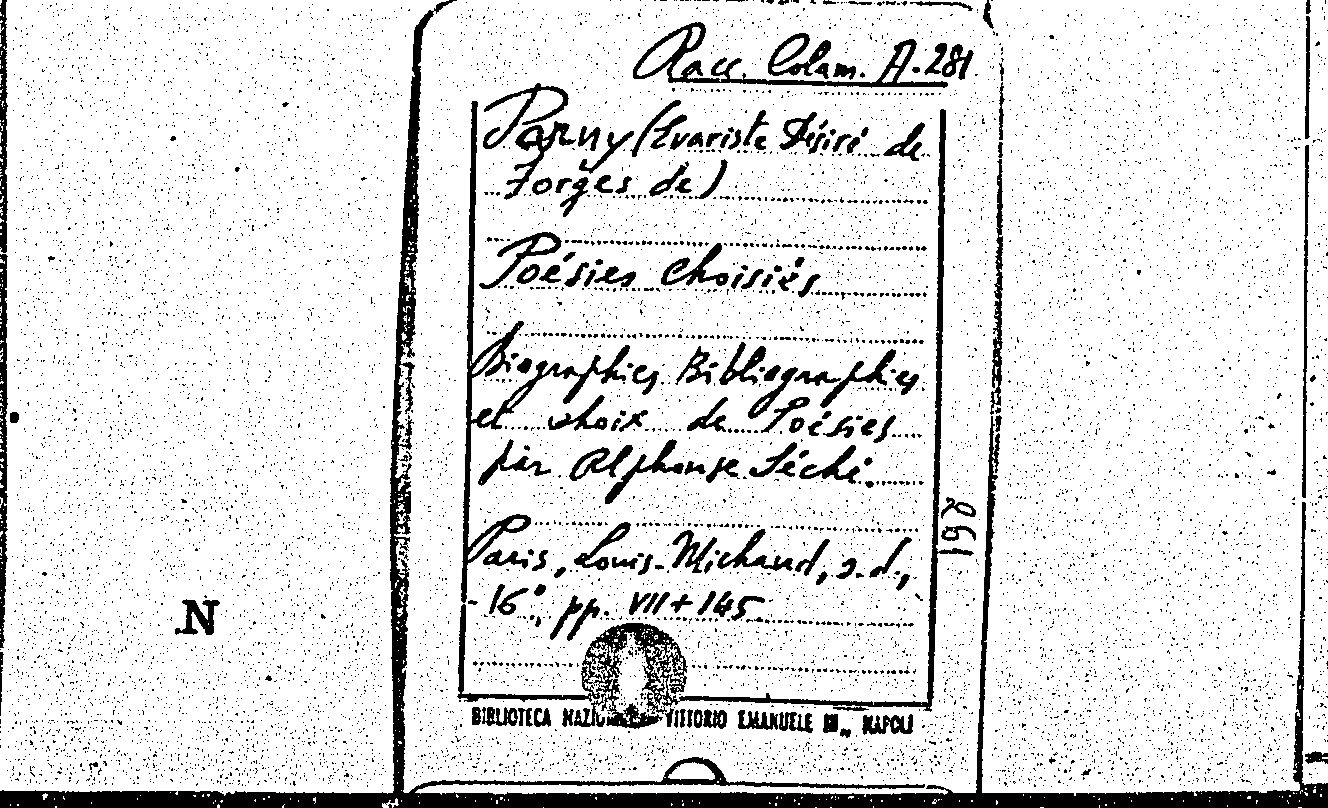 Racc. Colam. A. 281
Parny (Evariste Désiré de
Forges de)
Poésies choisies
Biographies Bibliographies
et choix de Poésies
par Alphonse Séché.
Paris, Louis-Michaud, s.d.,
-16°, pp. VII+145
198
N
BIBLIOTECA VITTORIO EMANUELE III„ NAPOLI